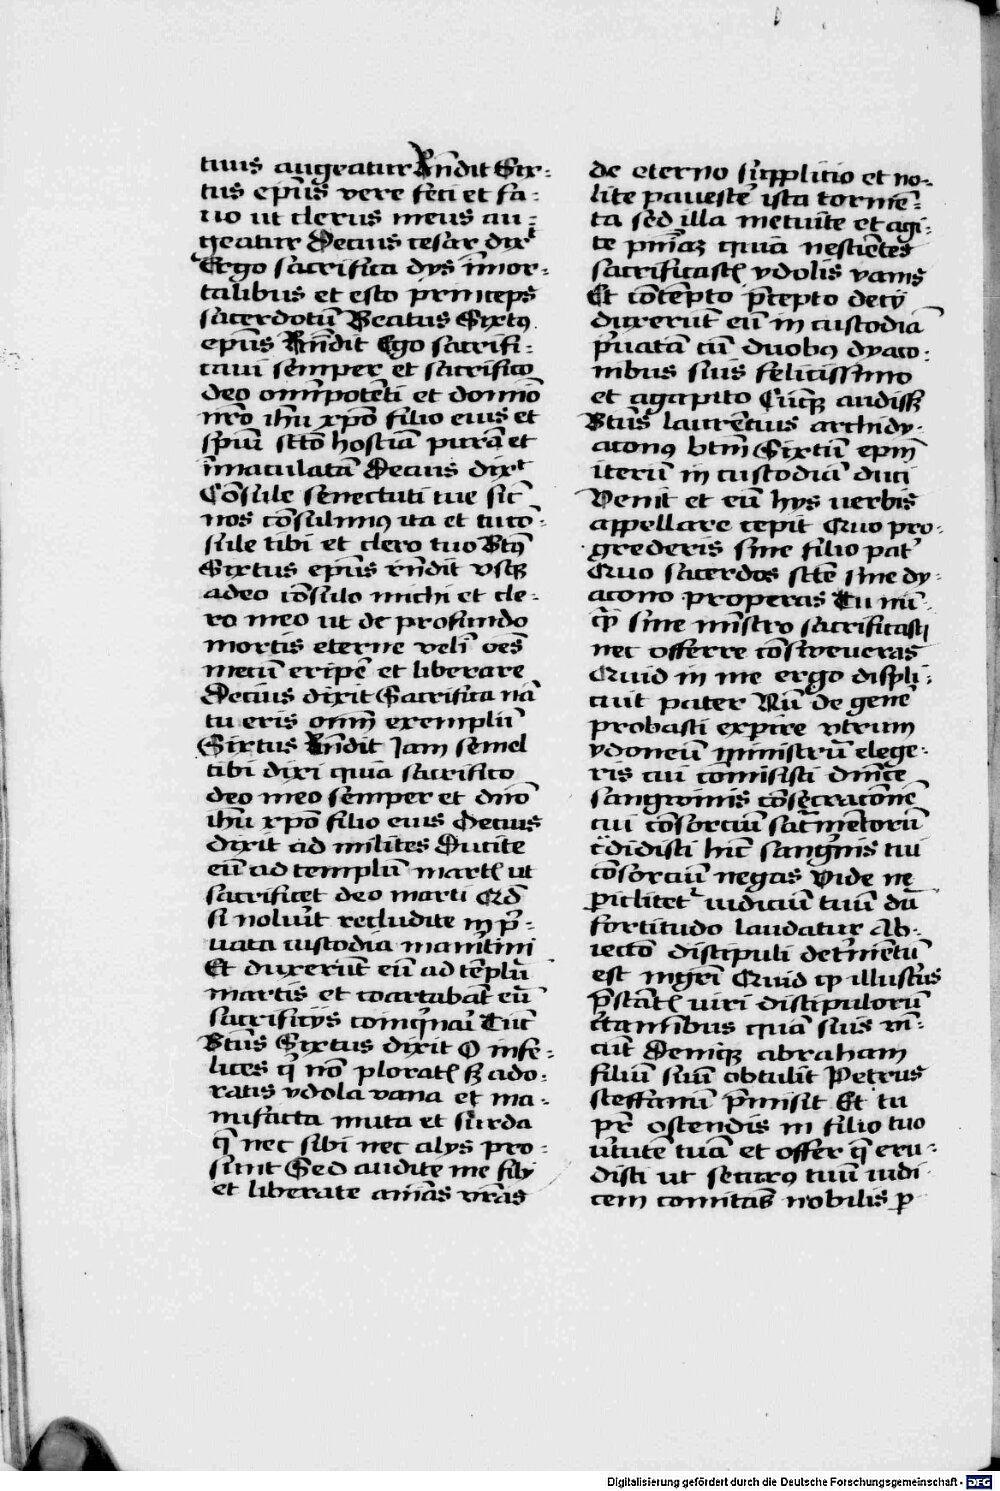 tuus augeatur Rn̄dit Six-
tus ep̄us vere feci et fa-
cio ut clerus meus au-
geatur Decius cesar dixͭ
Ergo sacrifica dys īmor-
talibus et esto princeps
sacerdotū Beatus Sixtꝰ
ep̄us Rn̄dit Ego sacrifi-
caui semper et sacrifico
deo omīpotēti et domīo
nr̄o ihū xpō filio eius et
sp̄ui sc̄tō hostiā purā et
īmaculatā Decius dixͭ
Cōsule senectuti tue sic̄
nos cōsulimꝰ ita et tu cō-
sule tibi et clero tuo Bt̄s
Sixtus ep̄us rn̄dit vsqꝫ
adeo cōsulo michi et cle-
ro meo ut de profundo
mortis eterne velī oēs
mecū eripē et liberare
Decius dixit Sacrifica nā
tu eris omīm exemplū
Sixtus Rn̄dit Jam semel
tibi dixi quia sacrifico
deo meo semper et dn̄o
ihū xpō filio eius Decius
dixit ad milites Ducite
eū ad templū martꝭ ut
sacrificet deo marti Qd̄
si noluīt recludite in p̄-
uata custodia mamītini
Et duxerūt eū ad tēplū
martis et coartabāt eū
sacrificijs coinq̄nari Tūc
Bt̄us Sixtus dixit O infe-
lices q̄ nō ploratꝭ sꝫ ado-
ratis ydola vana et ma-
nufacta muta et surda
q̄ nec sibi nec alys pro-
sunt Sed audite me filij
et liberate aīas vr̄as
de eterno supplicio et no-
lite pauescē ista tormē-
ta sed illa metuite et agi-
te pnīaꝫ quia nescientes
sacrificastꝭ ydolis vanis
Et cōtēpto p̄cepto decij
duxerūt eū in custodiā
p̄uatā cū duobꝰ dyaco-
nibus suis felicissimo
et agapito Cūqꝫ audissꝫ
Bt̄us laurēcius archidy-
aconꝰ btm̄ Sixtū ep̄m
iterū in custodiā duci
Venit et eū hys uerbis
appellare cepit Quo pro-
grederis sine filio patͬ
Quo sacerdos sc̄tē sine dy-
acono properas Tu nū-
qͣ sine mīstro sacrificasti
nec offerre cōsweueras
Quid in me ergo displi-
cuit pater Nū de genē
probasti expire vtrum
ydoneū ministrū elege-
ris cui cōmisisti dn̄ice
sangwinis cōsecracionē
cui cōsorciū sacͣmētorū
cͤdidisti huic sanḡnis tui
cōsorciū negas Vide ne
ꝑiclitetͬ iudiciū tuū dū
fortitudo laudatur Ab-
iectō discipuli detͥmētū
est mgr̄i Quid qͥ illustͥus
p̄stātꝭ viri discipulorū
c̄taminibus quā suis vī-
cūt Deniqꝫ abraham
filiū suū obtulit Petrus
steffanū p̄misit Et tu
pr̄ ostendis in filio tuo
v̄tutē tuā et offer qͤ eru-
disti ut securꝰ tuū iudi-
cem comitabͬ nobilis ꝑ
Digitalisierung gefördert durch die Deutsche Forschungsgemeinschaft - DFG